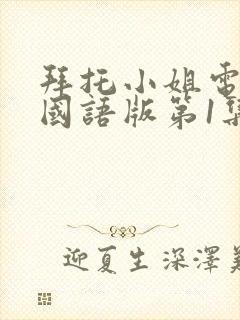 拜托小姐電
國語版第1集
迎夏生深澤美